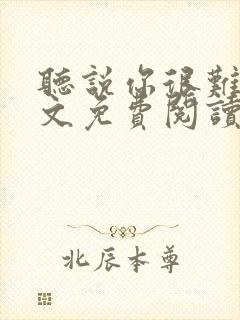 聽説你很難
文免費閱讀
北辰本尊